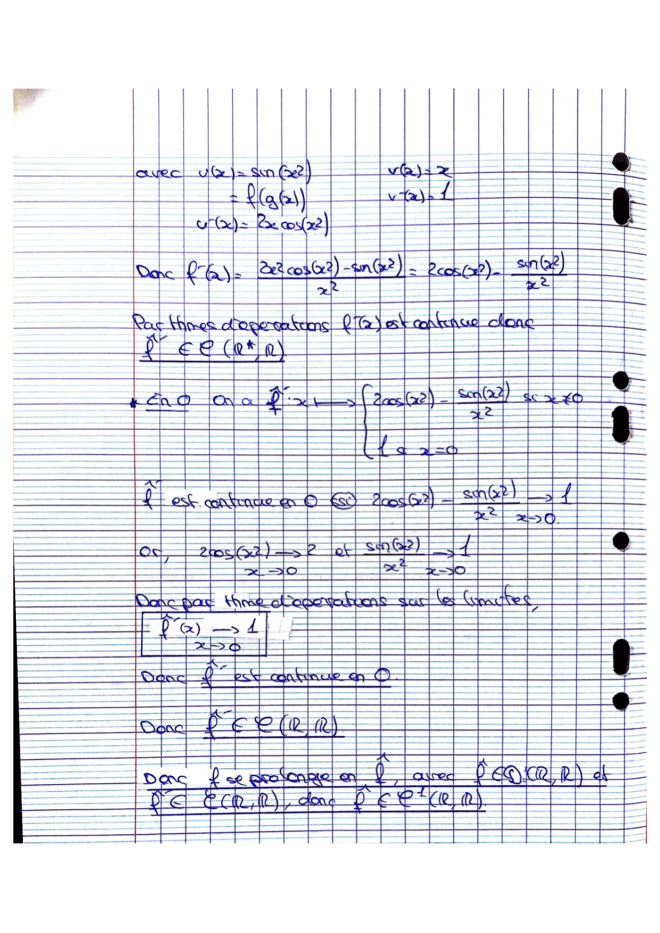 avec u(x) = sin(x²) v(x) = x
= f(g(x)) v'(x) = 1
u'(x) = 2x cos(x²)
Donc f'(x) = (2x² cos(x²) - sin(x²)) / x² = 2cos(x²) - sin(x²)/x²
Par thmes d'operations f'(x) est continue donc
f̂' ∈ C(R*, R)
* En 0 on a f̂' : x ⟼ { 2cos(x²) - sin(x²)/x² si x ≠ 0
1 si x = 0
f̂' est continue en 0 ssi 2cos(x²) - sin(x²)/x² → 1 x→0.
Or, 2cos(x²) → 2 x→0 et sin(x²)/x² → 1 x→0
Donc par thme d'operations sur les limites,
f̂'(x) → 1 x→0
Donc f̂' est continue en 0.
Donc f̂' ∈ C(R, R).
Donc f se prolonge en f̂, avec f̂ ∈ D(R, R) et
f̂' ∈ C(R, R), donc f̂ ∈ C¹(R, R).